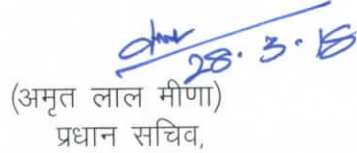 28.3.18
(अमृत लाल मीणा)
प्रधान सचिव,